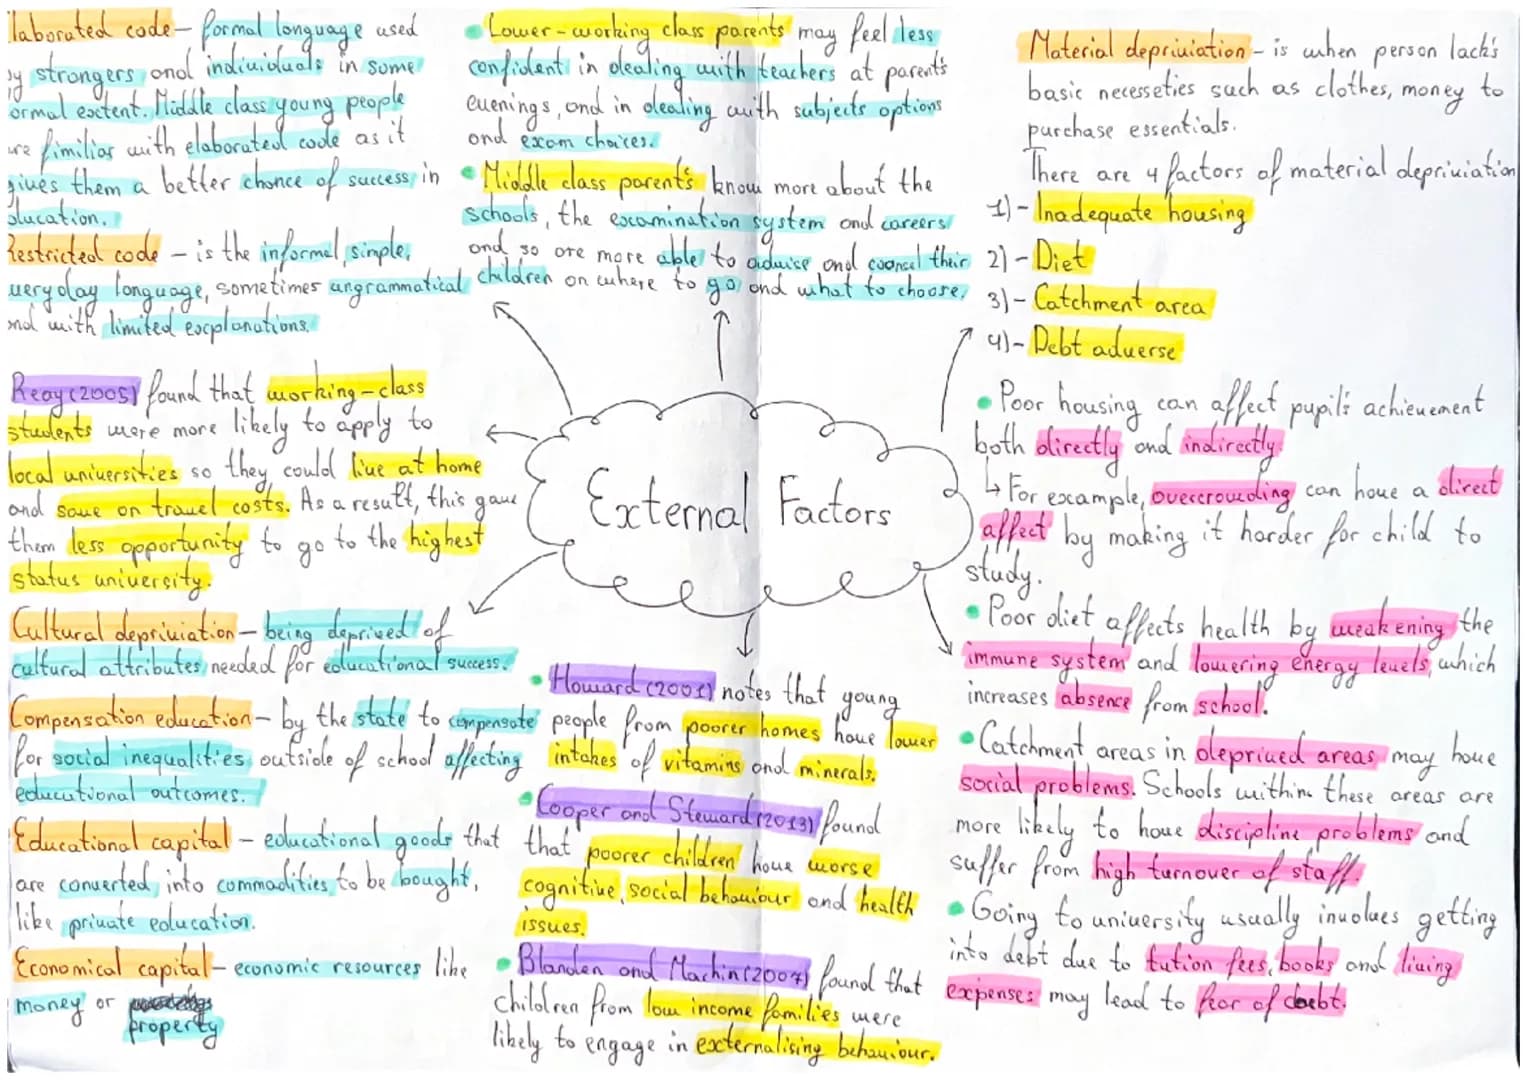 laborated code – formal language used
by strongers and individuals in some
ormal extent. Middle class young people
are fimiliar with elaborated code as it
gives them a better chance of success in
ducation.
Restricted code – is the informal, simple,
veryday language, sometimes ungrammatical
and with limited explanations.
Reay (2005) found that working-class
students were more likely to apply to
local universities so they could live at home
and save on travel costs. As a result, this gave
them less opportunity to go to the highest
status university.
Cultural depriviation – being deprived of
cultural attributes needed for educational success.
Compensation education – by the state to compensate
for social inequalities outside of school affecting
educational outcomes.
Educational capital – educational goods that
are converted into commodities to be bought,
like private education.
Economical capital – economic resources like
money or
property
• Lower-working class parents may feel less
confident in dealing with teachers at parent's
evenings, and in dealing with subjects options
and exam choices.
• Middle class parent's know more about the
schools, the examination system and careers
and so are more able to advise and counsel their
children on where to go and what to choose.
External Factors
• Howard (2001) notes that young
people from poorer homes have lower
intakes of vitamins and minerals.
• Cooper and Steward (2013) found
that poorer children have worse
cognitive, social behaviour and health
issues.
• Blanden and Machin (2007) found that
children from low income families were
likely to engage in externalising behaviour.
Material depriviation – is when person lack's
basic necesseties such as clothes, money to
purchase essentials.
There are 4 factors of material depriviation
1) – Inadequate housing
2) – Diet
3) – Catchment area
4) – Debt adverse
• Poor housing can affect pupil's achievement
both directly and indirectly.
↳ For example, overcrowding can have a direct
affect by making it harder for child to
study.
• Poor diet affects health by weakening the
immune system and lowering energy levels, which
increases absence from school.
• Catchment areas in deprived areas may have
social problems. Schools within these areas are
more likely to have discipline problems and
suffer from high turnover of staff.
• Going to university usually involves getting
into debt due to tution fees, books and living
expenses may lead to fear of debt.